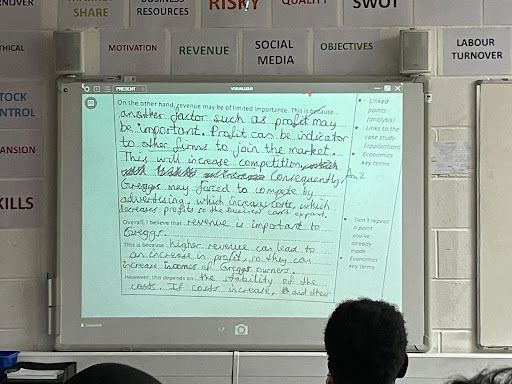 NOVER
MARKET
SHARE
BUSINESS
RESOURCES
RISKY
QUALITY
SWOT
THICAL
MOTIVATION
REVENUE
SOCIAL
MEDIA
OBJECTIVES
LABOUR
TURNOVER
STOCK
NTROL
ANSION
KILLS
PRESENT
VISUALISER
On the other hand, revenue may be of limited importance. This is because
another factor such as profit may
be important. Profit can be indicator
to other firms to join the market.
This will increase competition,
Consequently,
Greggs may forced to compete by
advertising, which increase costs, which
decreases profits so the business can't expand.
Overall, I believe that revenue is important to
Greggs.
This is because higher revenue can lead to
an increase in profit, so they can
increase incomes of Greggs owners.
However, this depends on the stability of the
costs. If costs increase, and other
Linked
points
(analysis)
Links to the
case study
(application)
Economics
key terms
An 2
Don't repeat
a point
you've
already
made
Economics
key terms